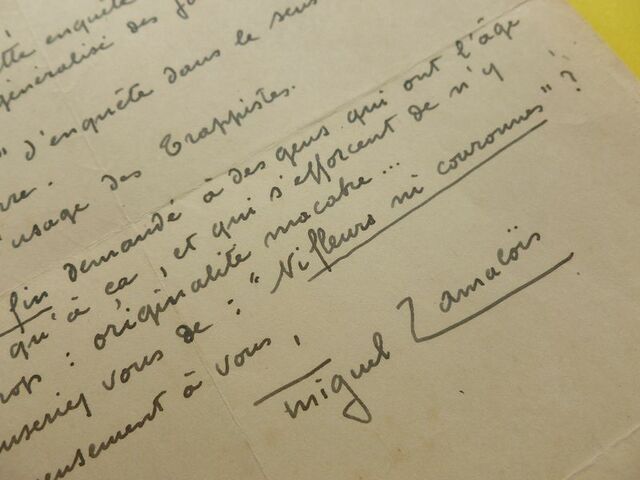 enquête
généralisé des
" d'enquête dans le sens
usage des Trappistes.
fin demandé à des gens qui ont l'âge
qu'à ça, et qui s'efforcent de n'y
: originalité macabre...
vous de : "Ni fleurs ni couronnes" ?
à vous,
Miguel Zamacoïs